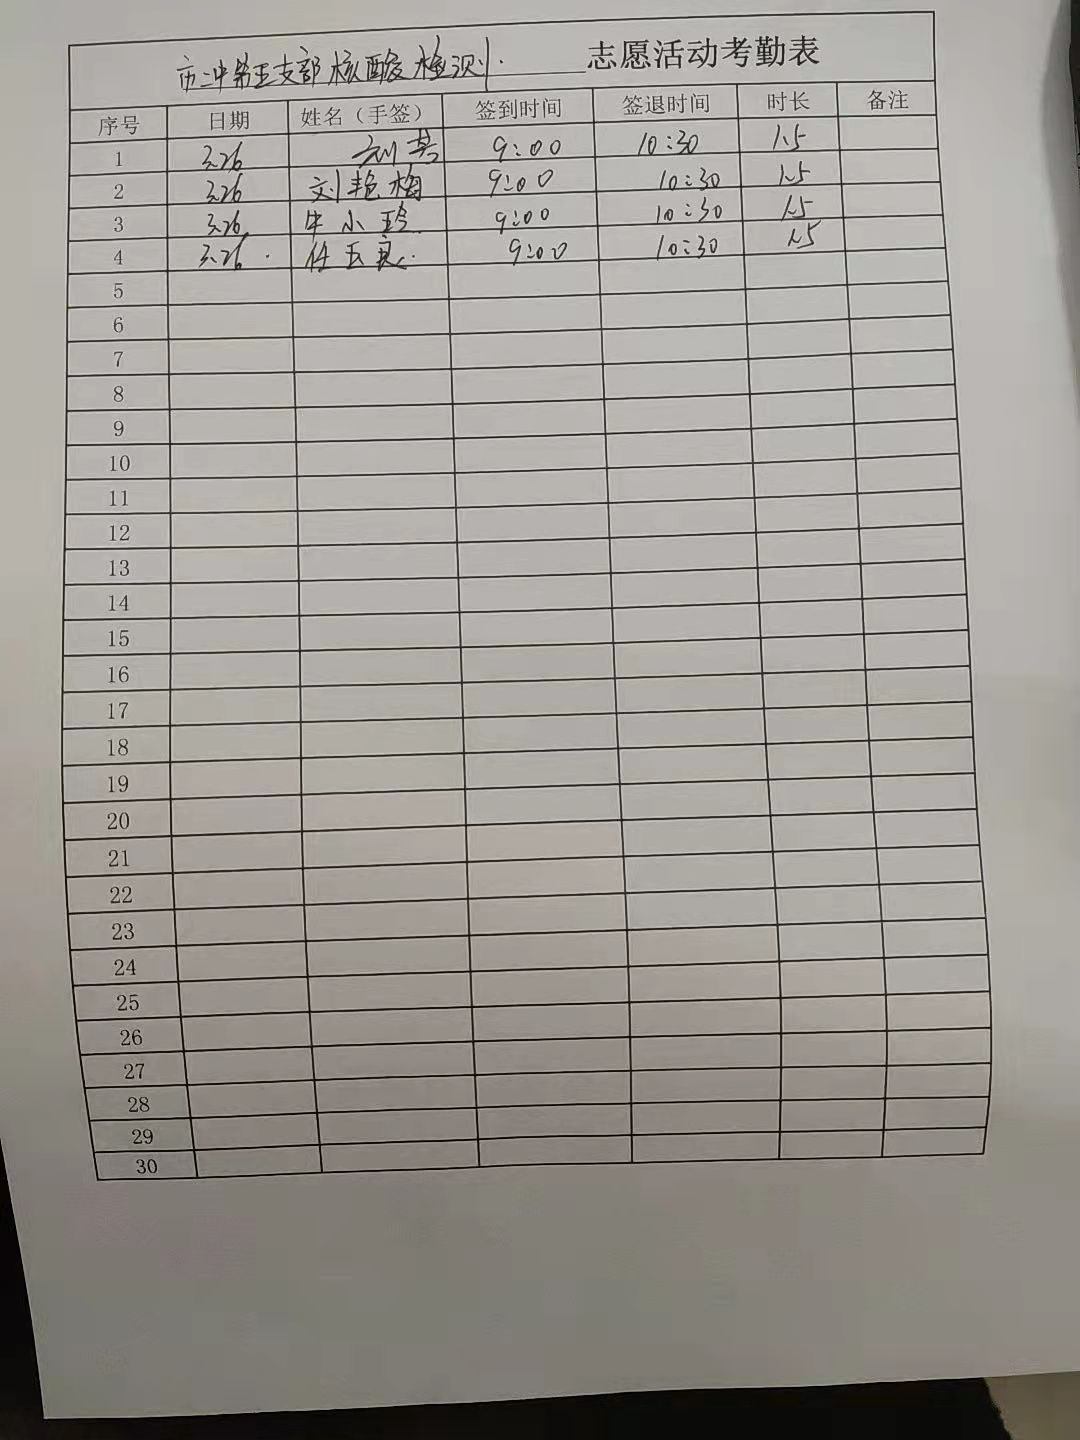 市二中第五支部核酸检测 志愿活动考勤表
序号 日期 姓名（手签） 签到时间 签退时间 时长 备注
1 3.26 刘 9:00 10:30 1.5
2 3.26 刘艳梅 9:00 10:30 1.5
3 3.26 牛小玲 9:00 10:30 1.5
4 3.26 任玉良 9:00 10:30 1.5
5
6
7
8
9
10
11
12
13
14
15
16
17
18
19
20
21
22
23
24
25
26
27
28
29
30